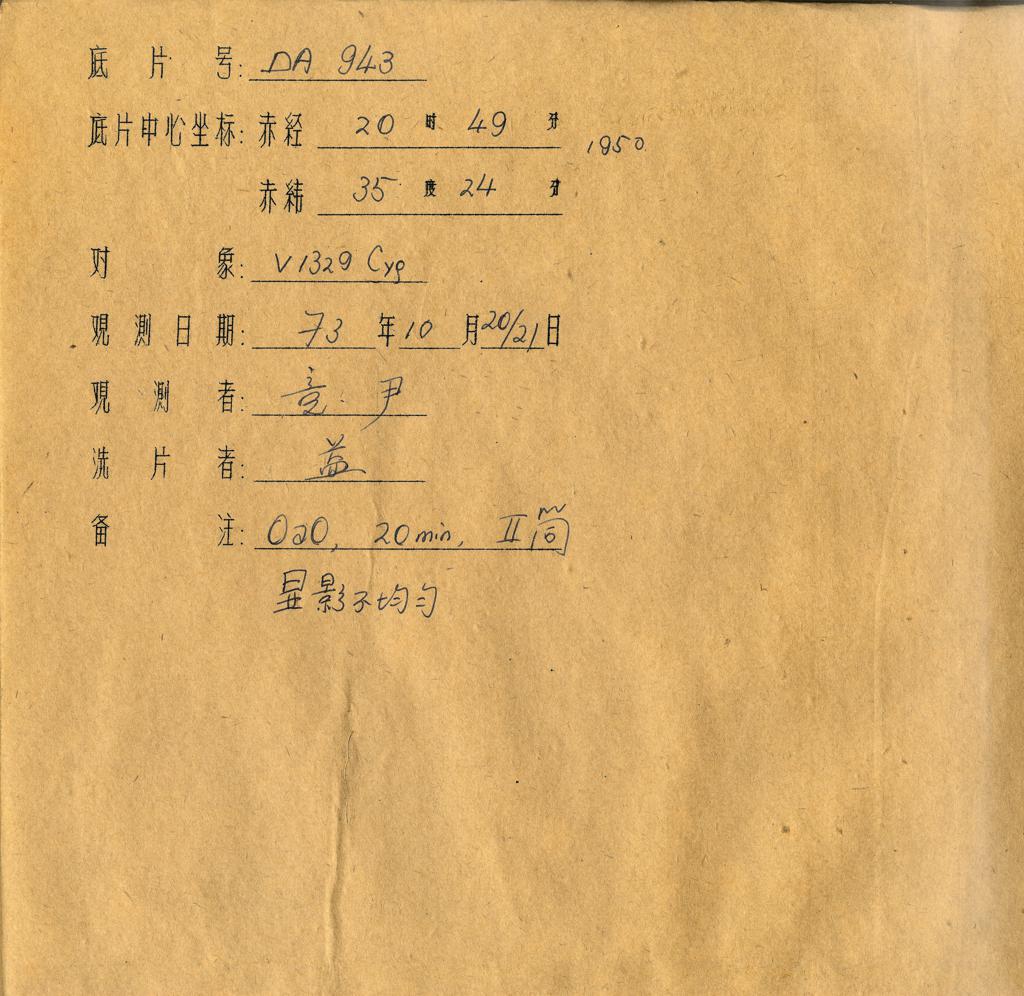 底片号: DA 943
底片中心坐标: 赤经 20 时 49 分 1950
赤纬 35 度 24 分
对象: V1329 Cyg
观测日期: 73 年 10 月 20/21 日
观测者: 竞 尹
洗片者: 益
备注: OaO, 20min, II筒
显影不均匀